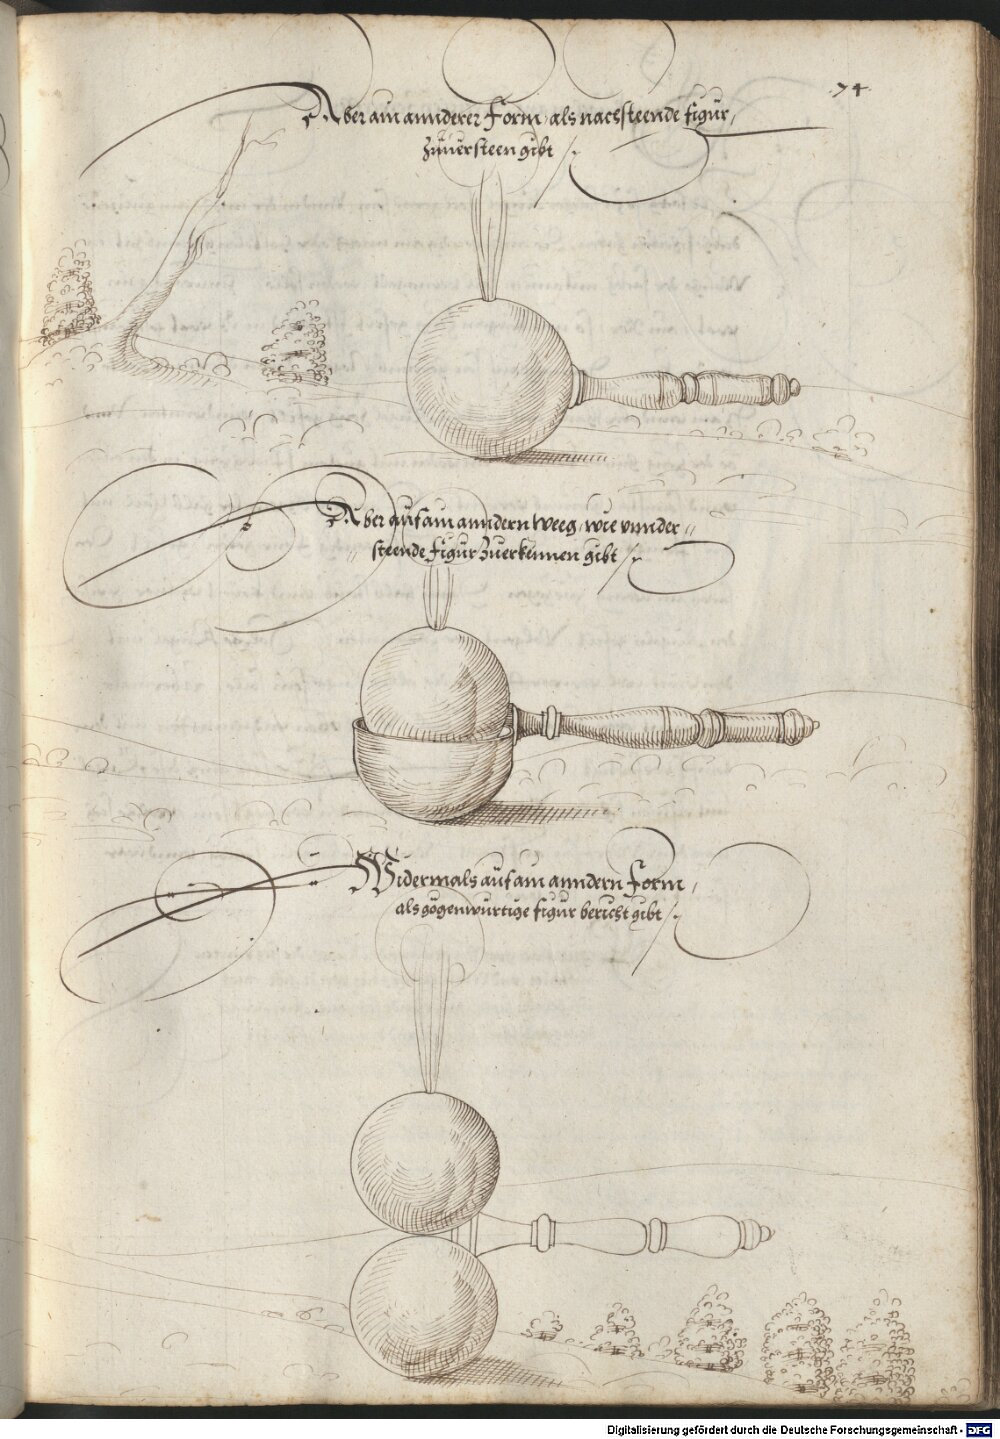 74
Aber ain annderer Form, als nachsteende figur,
zuuersteen gibt
Aber auf ain anndern weeg, wie vnnder
steende figur zuerkennen gibt
Widermals auf ain anndern Form,
als gögenwürtige figur bericht gibt
Digitalisierung gefördert durch die Deutsche Forschungsgemeinschaft - DFG